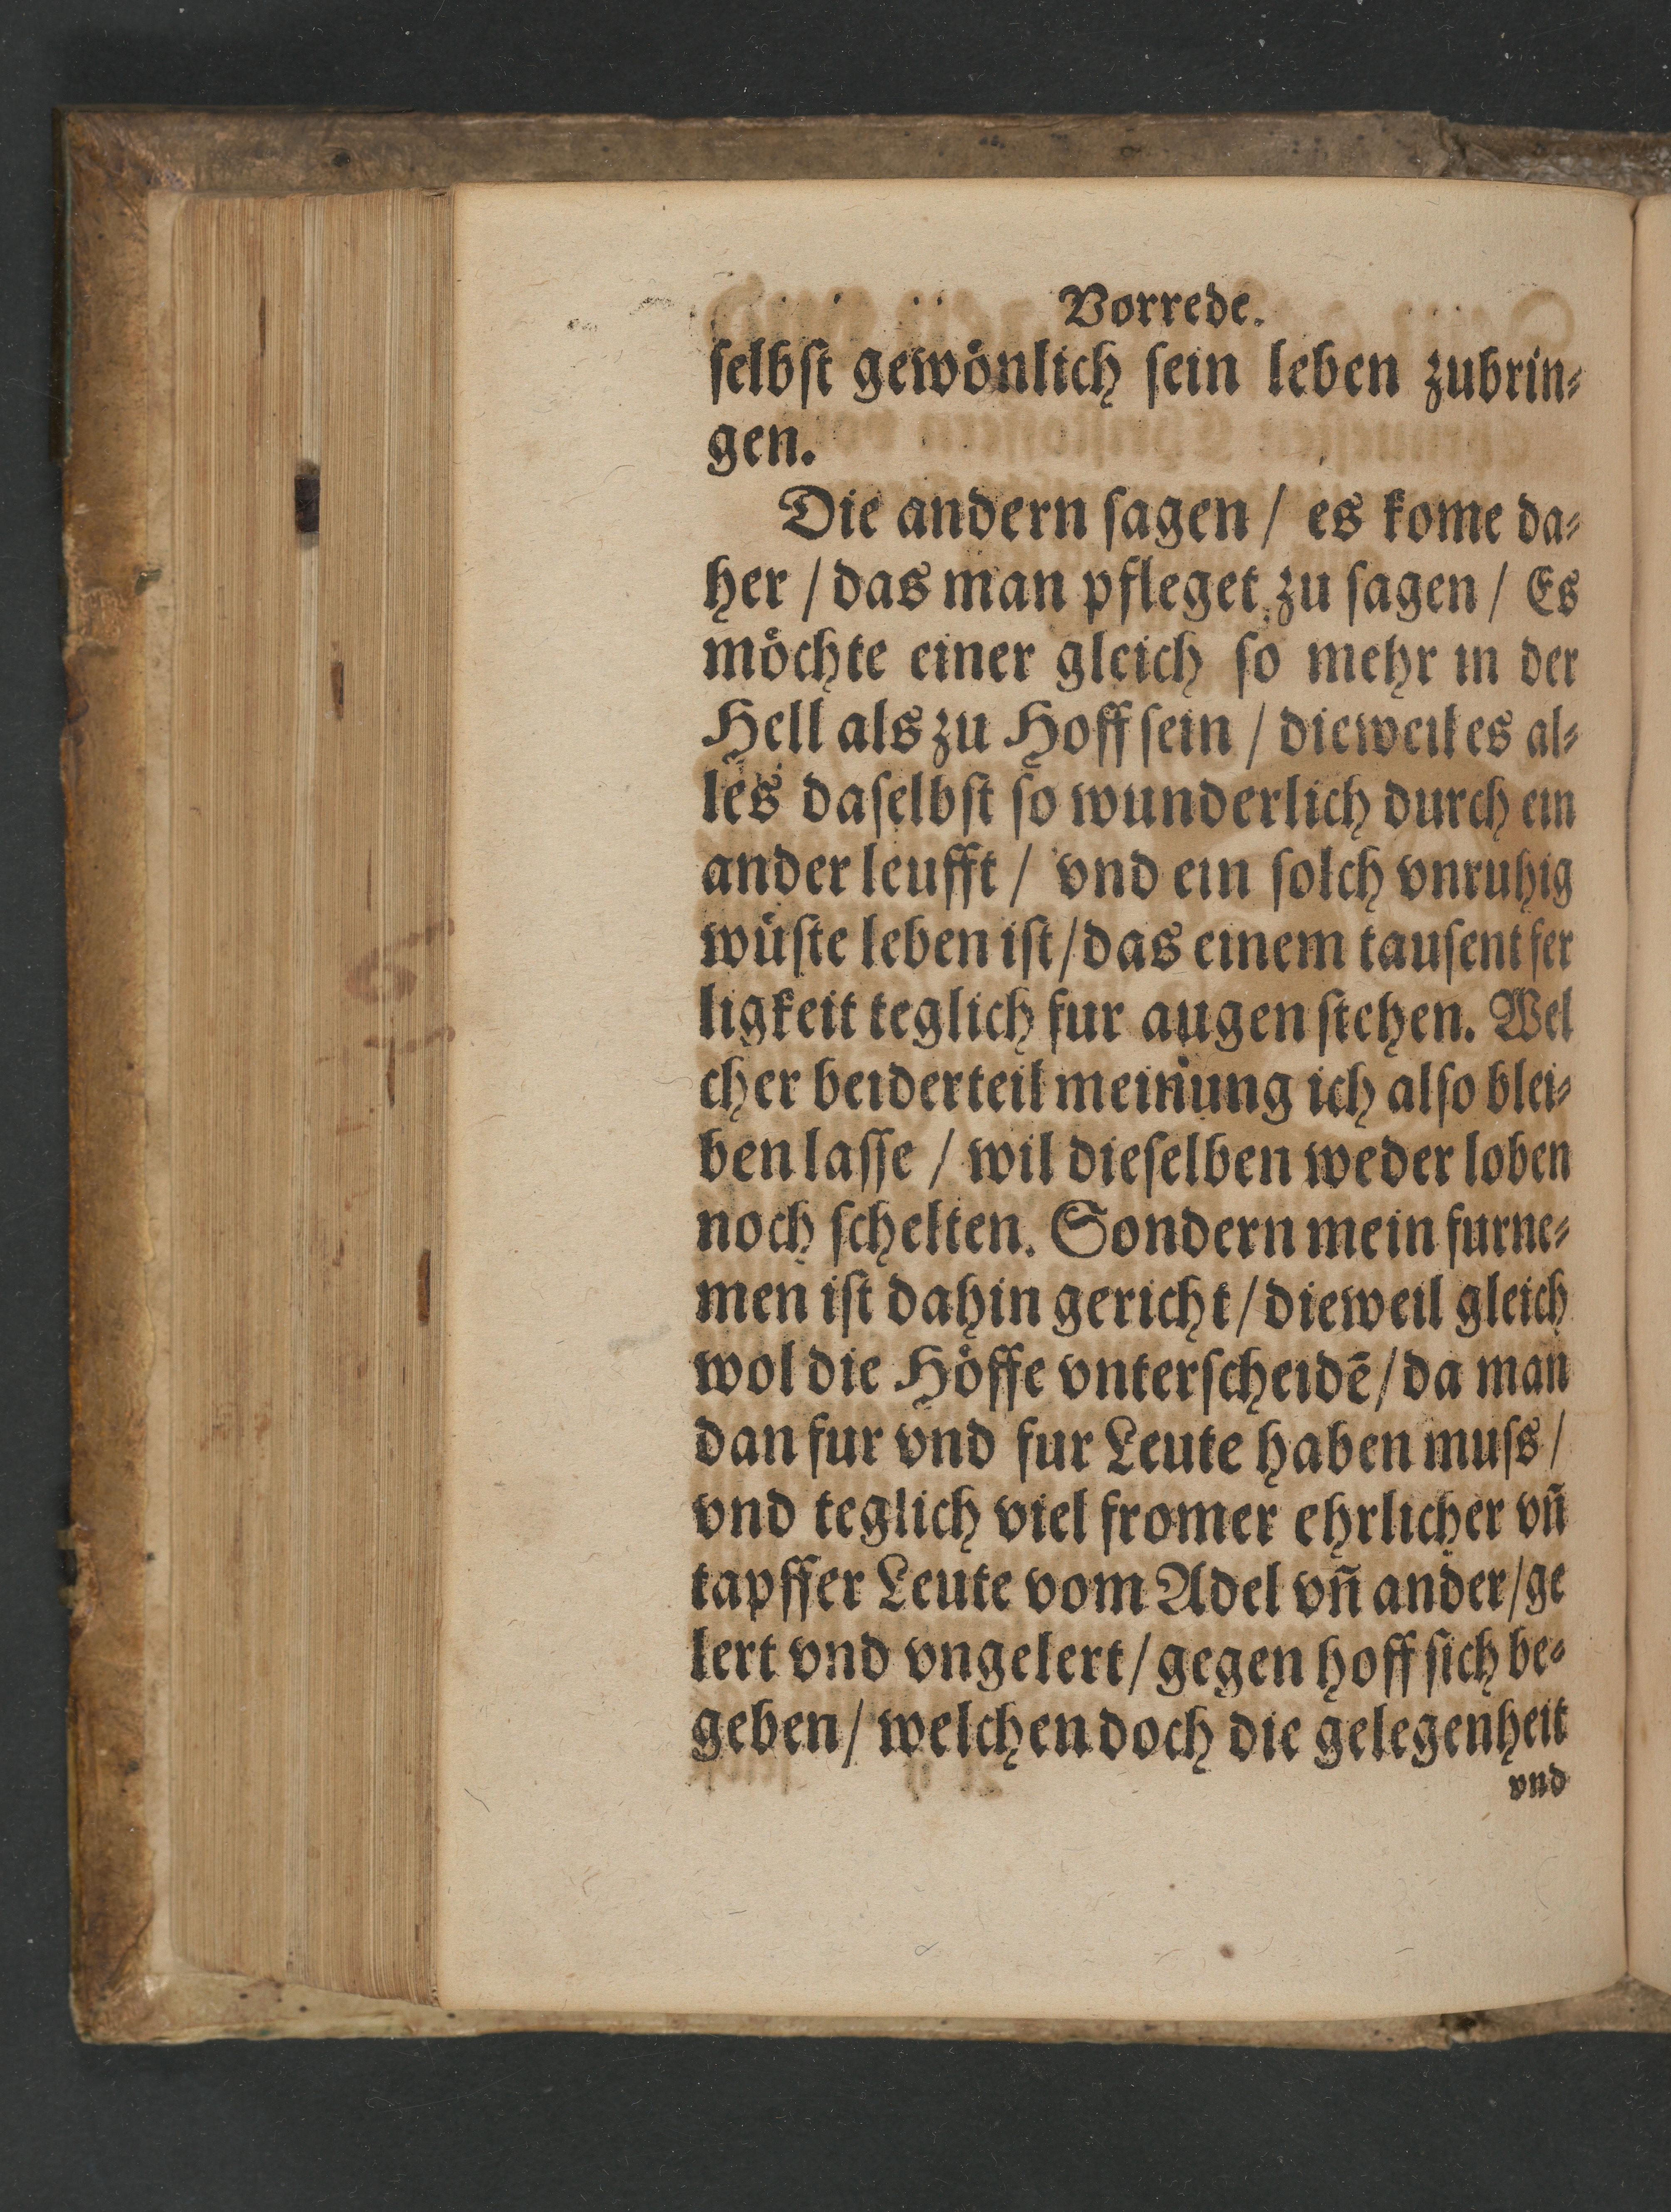 Vorrede.
ſelbſt gewoͤnlich ſein leben zubrin⸗
gen.
Die andern ſagen / es kome da⸗
her / das man pfleget zu ſagen / Es
moͤchte einer gleich ſo mehr in der
Hell als zu Hoff ſein / dieweil es al⸗
les daſelbſt ſo wunderlich durch ein
ander leufft / vnd ein ſolch vnruhig
wuͤſte leben iſt / das einem tauſent fer
ligkeit teglich fur augen ſtehen. Wel
cher beiderteil meinung ich alſo blei⸗
ben laſſe / wil dieſelben weder loben
noch ſchelten. Sondern mein furne⸗
men iſt dahin gericht / dieweil gleich
wol die Hoͤffe vnterſcheidē / da man
dan fur vnd fur Leute haben muſs /
vnd teglich viel fromer ehrlicher vn̄
tapffer Leute vom Adel vn̄ ander / ge
lert vnd vngelert / gegen hoff ſich be⸗
geben / welchen doch die gelegenheit
vnd